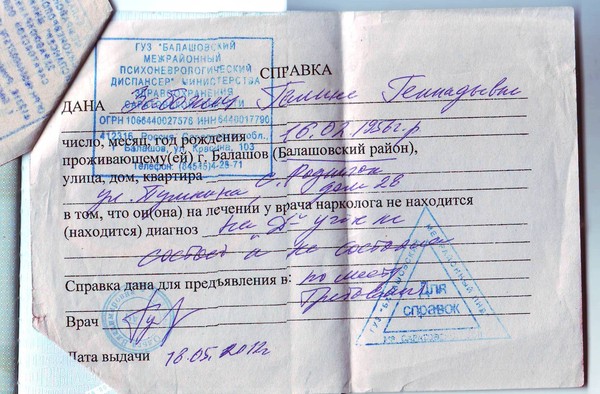 ГУЗ "БАЛАШОВСКИЙ
МЕЖРАЙОННЫЙ
ПСИХОНЕВРОЛОГИЧЕСКИЙ
ДИСПАНСЕР" МИНИСТЕРСТВА
ЗДРАВООХРАНЕНИЯ
ОГРН 1066440027576 ИНН 6440017790
412316, Россия, обл.,
Балашов, ул. 103
Телефон: (84545)4-25-71
СПРАВКА
ДАНА Галине Геннадьевне
число, месяц, год рождения 16.02.1956г.р.
проживающему(ей) г. Балашов (Балашовский район),
улица, дом, квартира с. Родничок
ул. Пушкина дом 28
в том, что он(она) на лечении у врача нарколога не находится
(находится) диагноз на "Д" учёте не
состоит и не состояла
Справка дана для предъявления в: по месту
требования
Врач
Дата выдачи 18.05.2012г
Для
справок